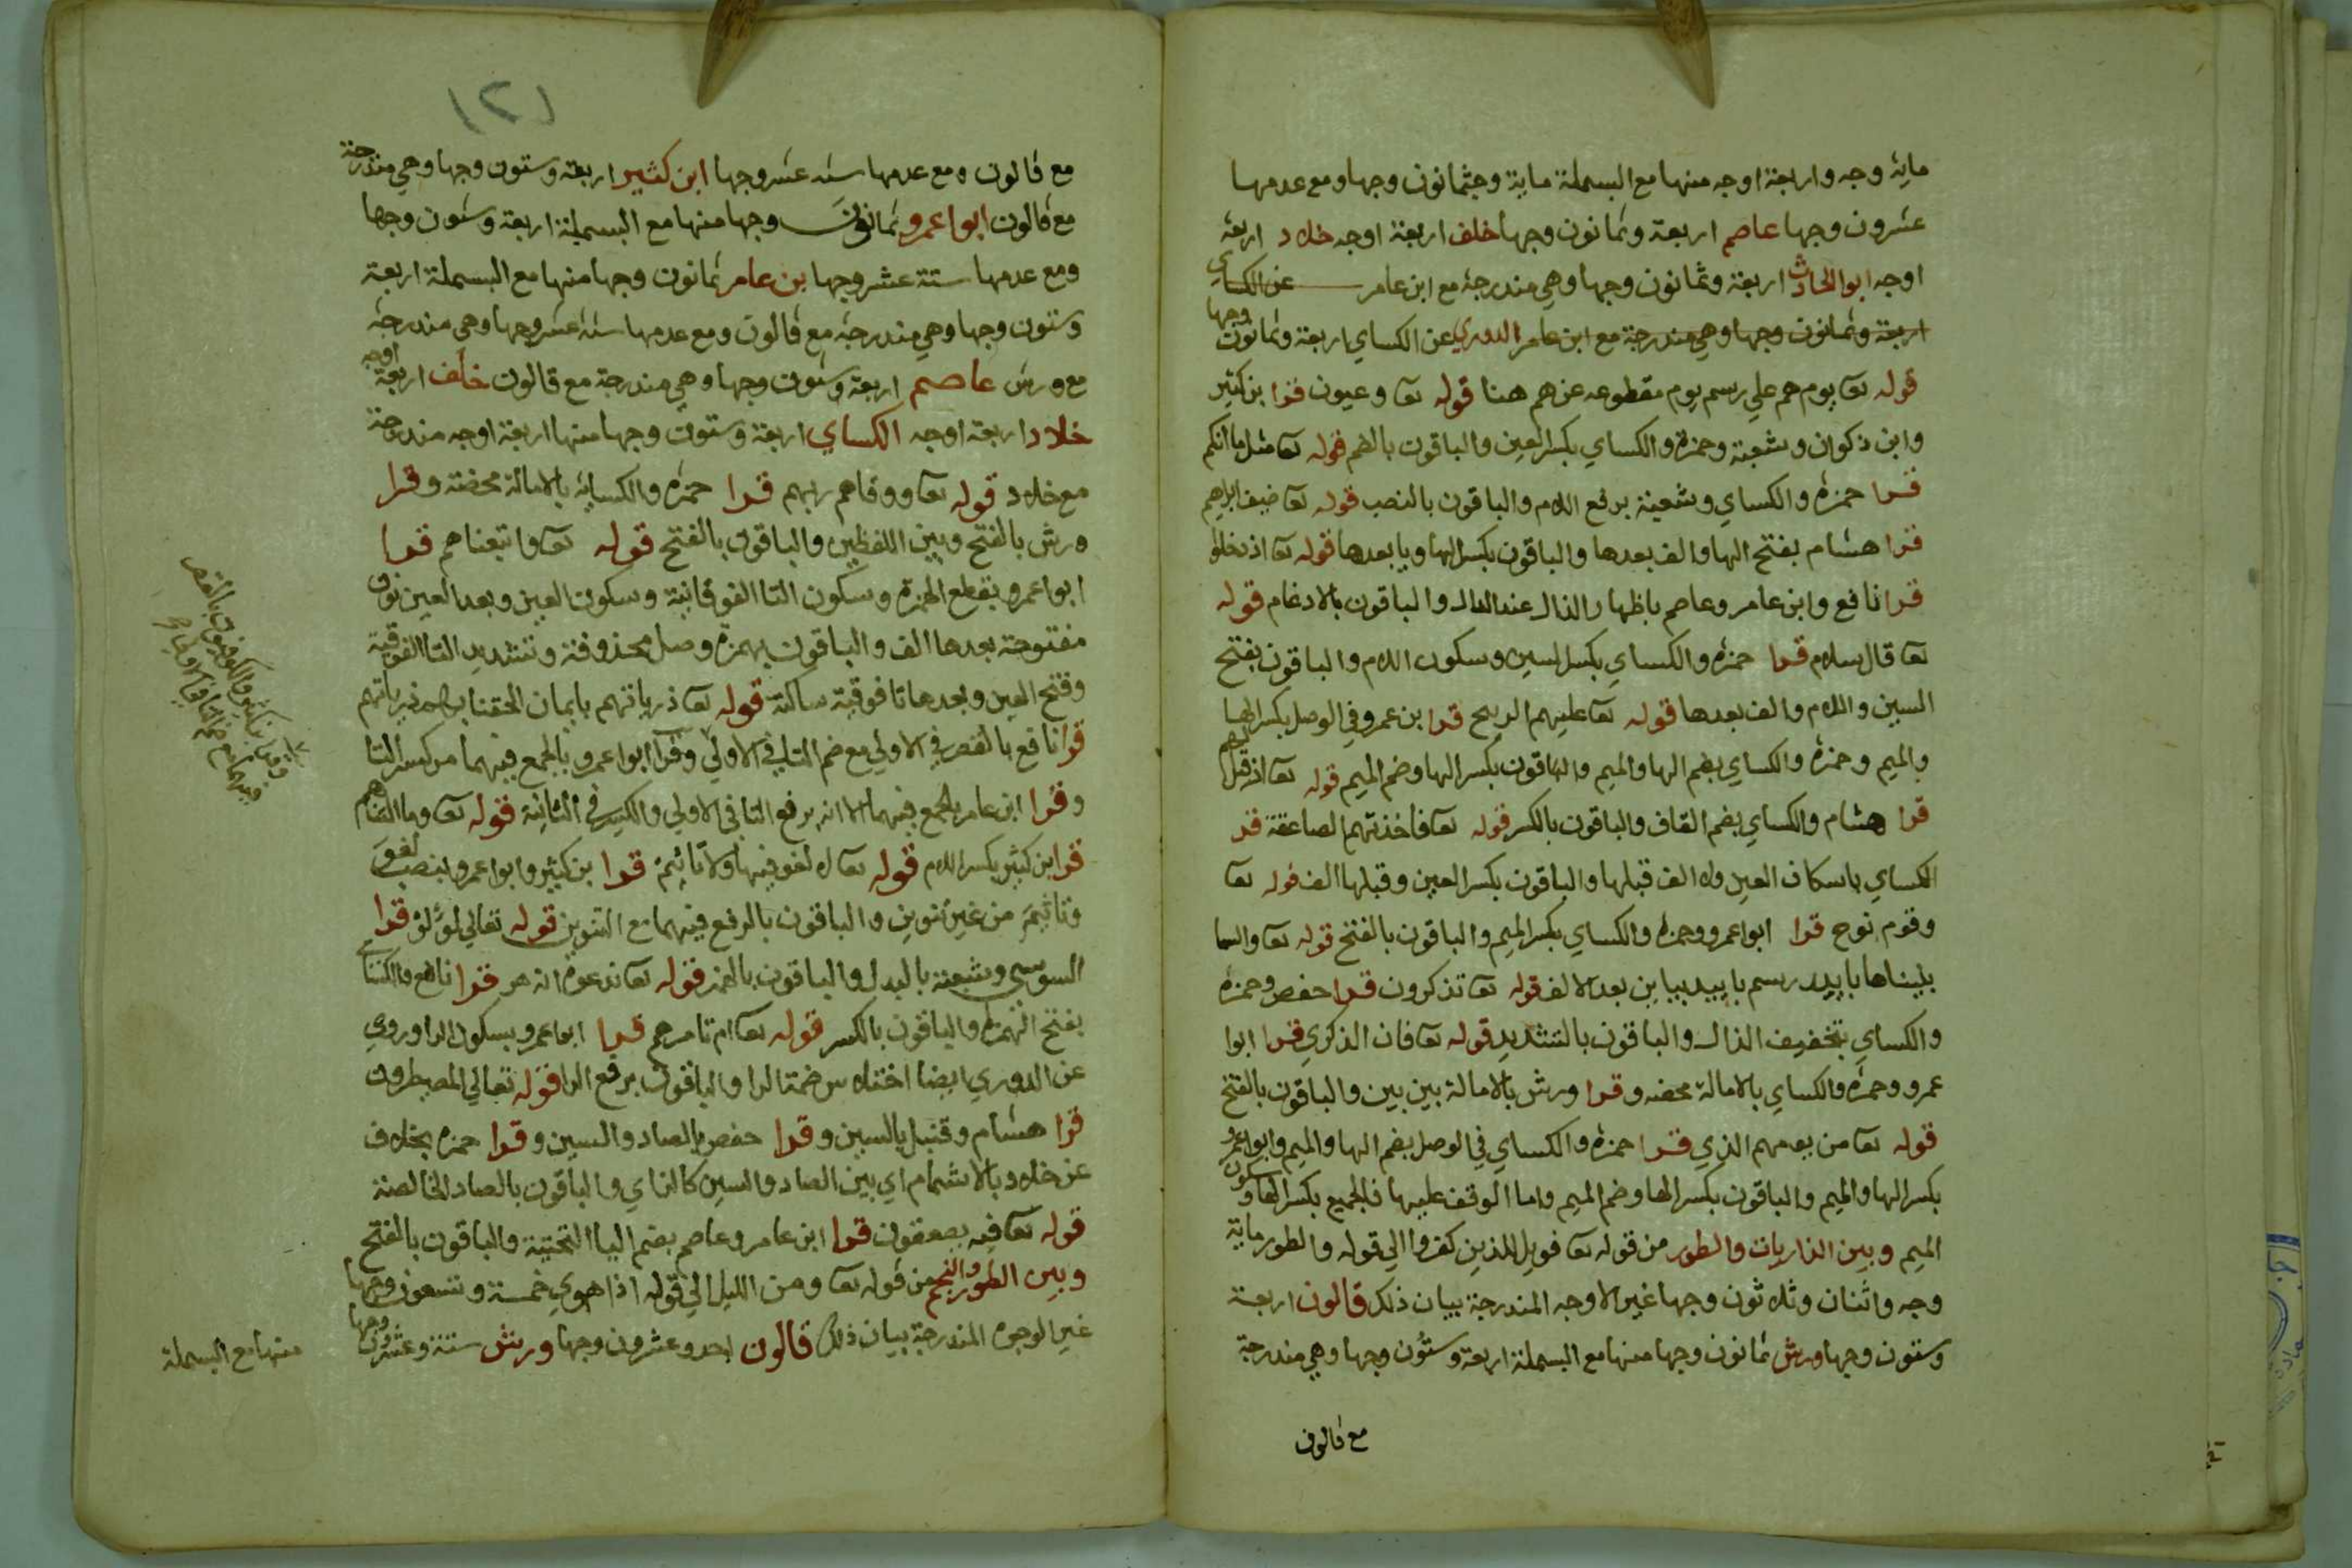 ماية وجه واربعة اوجه منها مع البسملة ماية وثمانون وجها ومع عدمها
عشرون وجها عاصم اربعة وثمانون وجها خلف اربعة اوجه خلاد اربعة
اوجه ابو الحارث اربعة وثمانون وجها وهي مندرجة مع ابن عامر عن الكساي
اربعة وثمانون وجها وهي مندرجة مع ابن عامر الدوري عن الكساي اربعة وثمانون وجها
قوله تعا يوم هم علي رسم يوم مقطوعه عن هم هنا قوله تعا وعيون قرا بن كثير
وابن ذكوان وشعبة وحمزة والكساي بكسر العين والباقون بالضم قوله تعا مثل ما انكم
قرا حمزة والكساي وشعبة برفع اللام والباقون بالنصب قوله تعا ضيف ابراهيم
قرا هشام بفتح الها والف بعدها والباقون بكسر الها ويا بعدها قوله تعا اذ دخلوا
قرا نافع وابن عامر وعاصم باظهار الذال عند الدال والباقون بالادغام قوله
تعا قال سلام قرا حمزة والكساي بكسر السين وسكون اللام والباقون بفتح
السين واللام والف بعدها قوله تعا عليهم الريح قرا بن عمرو في الوصل بكسر الها
والميم وحمزة والكساي بضم الها والميم والباقون بكسر الها وضم الميم قوله تعا اذ قيل لهم
قرا هشام والكساي بضم القاف والباقون بالكسر قوله تعا فاخذتهم الصاعقة قر
الكساي باسكان العين ولا الف قبلها والباقون بكسر العين وقبلها الف قوله تعا
وقوم نوح قرا ابو اعمرو وحمزة والكساي بكسر الميم والباقون بالفتح قوله تعا والسما
بنيناها باييد رسم باييد بيايين بعد الالف قوله تعا تذكرون قرا حفص وحمزة
والكساي بتخفيف الذال والباقون بالتشديد قوله تعا فان الذكري قرا ابوا
عمرو وحمزة والكساي بالامالة محضه وقرا ورش بالامالة بين بين والباقون بالفتح
قوله تعا من يومهم الذي قرا حمزة والكساي في الوصل بضم الها والميم وابواعمرو
بكسر الها والميم والباقون بكسر الها وضم الميم واما الوقف عليها فالجميع بكسر الها وسكون
الميم وبين الذاريات والطور من قوله تعا فويل للذين كفروا الي قوله والطور ماية
وجه واثنان وثلاثون وجها غير الاوجه المندرجة بيان ذلك قالون اربعة
وستون وجها ورش ثمانون وجها منها مع البسملة اربعة وستون وجها وهي مندرجة
مع قالون
١٢١
مع قالون ومع عدمها ستة عشر وجها ابن كثير اربعة وستون وجها وهي مندرجة
مع قالون ابوا عمرو ثمانون وجها منها مع البسملة اربعة وستون وجها
ومع عدمها ستة عشر وجها بن عامر ثمانون وجها منها مع البسملة اربعة
وستون وجها وهي مندرجة مع قالون ومع عدمها ستة عشر وجها وهي مندرجة
مع ورش عاصم اربعة وستون وجها وهي مندرجة مع قالون خلف اربعة اوجه
خلاد اربعة اوجه الكساي اربعة وستون وجها منها اربعة اوجه مندرجة
مع خلاد قوله تعا ووقاهم ربهم قرا حمزة والكسايه بالامالة محضة وقرا
ورش بالفتح وبين اللفظين والباقون بالفتح قوله تعا واتبعناهم قرا
ابوا عمرو بقطع الهمزة وسكون التا الفوقانية وسكون العين وبعد العين نون
مفتوحة بعدها الف والباقون بهمزة وصل محذوفة وتشديد التا الفوقية
وفتح العين وبعدها تا فوقية ساكنة قوله تعا ذرياتهم بايمان الحقنا بهم ذرياتهم
قرا نافع بالقصر في الاولي مع ضم التا في الاولي وقرا ابوا عمرو بالجمع فيهما مع كسر التا
وقرا ابن عامر بالجمع فيهما الا انه يرفع التا في الاولي والكسر في الثانية قوله تعا وما التناهم
قرا ابن كثير بكسر اللام قوله تعا لا لغو فيها ولا تاثيم قرا بن كثير وابوا عمرو بنصب لغو
وتاثيم من غير تنوين والباقون بالرفع فيهما مع التنوين قوله تعالي لؤلؤ قرا
السوسي وشعبة بالبدل والباقون بالهمز قوله تعا ندعوه انه هو قرا نافع والكساي
بفتح الهمزة والباقون بالكسر قوله تعا ام تامرهم قرا ابوا عمرو بسكون الرا وروي
عن الدوري ايضا اختلاس ضمة الرا والباقون برفع الرا قوله تعالي المصيطرون
قرا هشام وقنبل بالسين وقرا حفص بالصاد والسين وقرا حمزه بخلاف
عن خلاد بالاشمام اي بين الصاد والسين كالزاي والباقون بالصاد الخالصة
قوله تعا فيه يصعقون قرا ابن عامر وعاصم بضم اليا التحتية والباقون بالفتح
وبين الطور والنجم من قوله تعا ومن الليل الي قوله اذا هوي خمسة وتسعون وجها
غير الوجوه المندرجة بيان ذلك قالون احد وعشرون وجها ورش ستة وعشرون وجها
منها مع البسملة